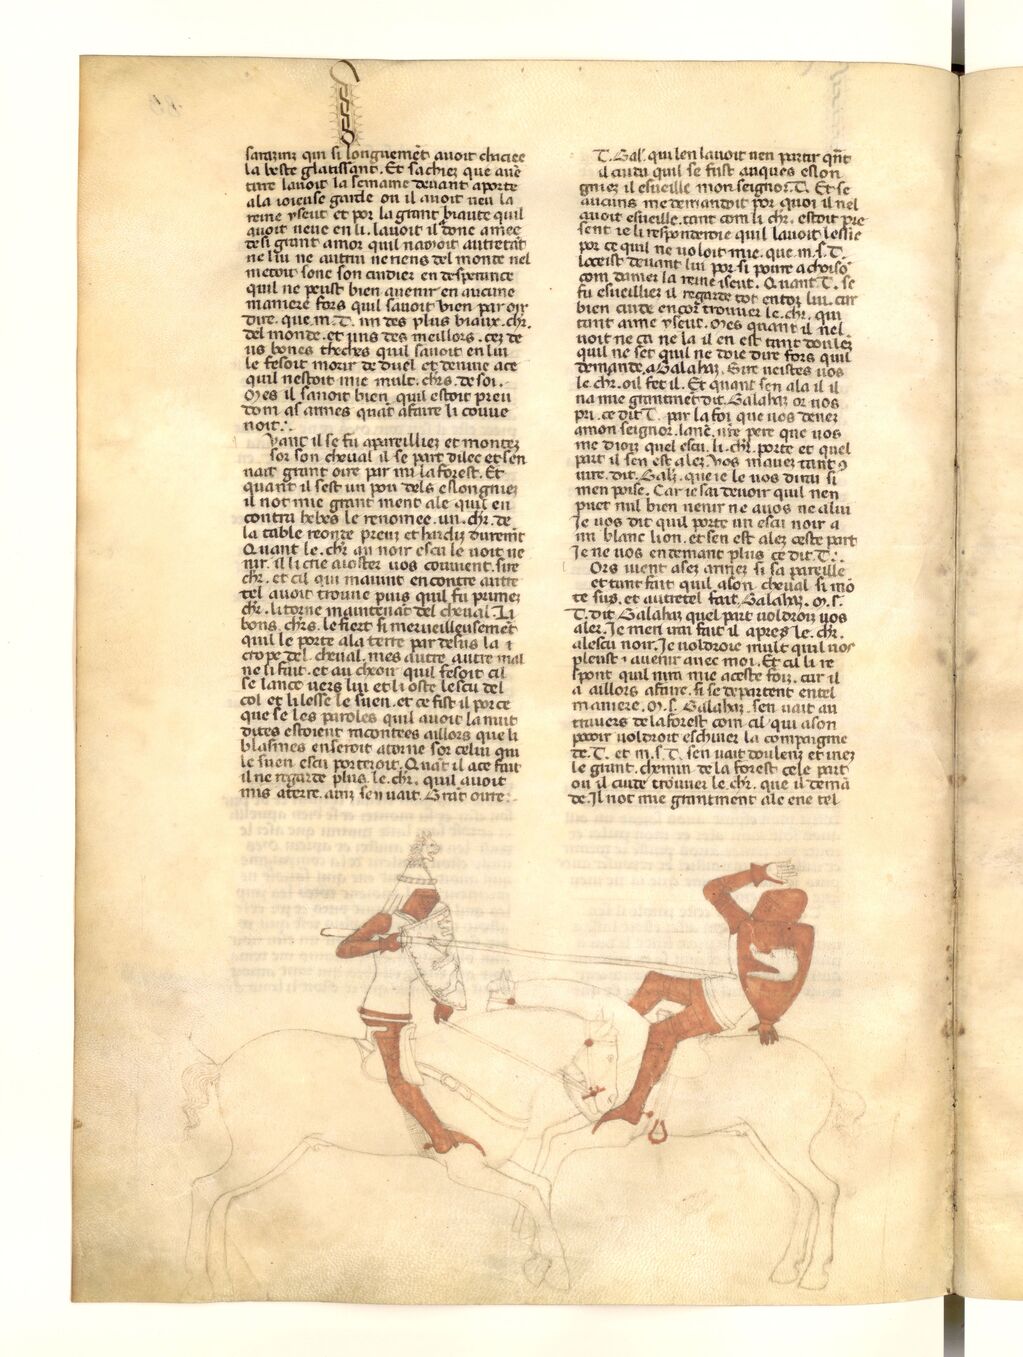 sarazinz qui si longuemẽt auoit chaciee
la beste glatissant. Et sachiez que auẽ
ture lauoit la semaine deuant aporte
ala ioieuse garde ou il auoit ueu la
reine yseut et por la grant biaute quil
auoit ueue en li. lauoit il donc amee
desi grant amor quil namoit autretãt
ne lui ne autrui ne riens del monde nel
metoit fonc son cuidier en desperance
quil ne peust bien auenir en aucune
maniere fors quil sauoit bien par oir
dire. que .m. T. un des plus biaux. chr.
del monde. et uns des meillors. cez de
us bones theches quil sauoit en lui
le fesoit morir de duel et denuie ace
quil nestoit mie mult. chrs. de soi.
Mes il sauoit bien quil estoit preu
dom as armes quãt afaire li couue
noit.
Vant il se fu apareilliez et montez
sor son cheual il se part dilec et sen
uait grant oirre par mi la forest. Et
quant il sest un pou dels eslongniez
il not mie grant ment ale quil en
contra hebes le renomee. un. chr. de
la table reonde preuz et hardiz durement
Quant le. chr. au noir escu le uoit ue
nir. il li crie aiostez uos couuient. sire
chr. et cil qui mauint en contre autre
tel auoit trouue puis quil fu primez
chr. li torne maintenãt del cheual. Li
bons. chrs. le fiert si merueilleusement
quil le porte ala terre par desus la
crope del. cheual. mes autre. autre mal
ne li fait. et au cheoir quil fesoit cil
se lance uers lui et li oste lescu del
col et li lesse le suen. et ce fist il por ce
que se les paroles quil auoit la nuit
dites estoient racontees aillors que li
blasmes en seroit atorne sor celui qui
le suen escu porteroit. Quãt il ace fait
il ne regarde plus. le. chr. quil auoit
mis aterre. ainz sen uait. Grãt oirre.
T. Gal'. qui len lauoit uen partir qñt
il cuida quil se fust auques eslon
gniez il esueille mon seignor. T. Et se
aucuns me demandoit por quoi il nel
auoit esueille. tant com li chr. estoit pre
sent ie li responderoie quil lauoit lessie
por ce quil ne uoloit mie. que m. s. T.
loceist deuant lui por si poure achoisõ
com damer la reine iseut. Quant T. se
fu esueilliez il regarde tot entor lui. car
bien cuide encor trouuer le. chr. qui
tant aime yseut. Mes quant il nel
uoit ne ca ne la il en est tant doulez
quil ne set quil ne doie dire fors quil
demande. a Galahaz. Sire ueistes uos
le chr. oil fet il. Et quant sen ala il il
na mie grantmet dit. Galahaz or uos
pri. ce dit T. par la foi que uos deuez
amon seignor. lanc̃. ure pere que uos
me dioiz quel escu. li. chr. porte et quel
part il sen est alez. Uos mauez tant 9
iure. dit. Galz. que ie le uos dirai si
men poise. Car ie sai deuoir quil nen
puet nul bien uenir ne auos ne alui
Je uos dit quil porte un escu noir a
un blanc lion. et sen est alez ceste part
Je ne uos en demant plus ce dit. T.
Ors uient asez armez si sa pareille
et tant fait quil a son cheual si mõ
te sus. et autretel fait. Galahaz. M. s.
T. dit Galahaz quel part uoldroiz uos
aler. Je men uai fait il apres le. chr.
alescu noir. Je uoldroie mult quil uos
pleust auenir auec moi. Et cil li re
spont quil nira mie aceste foiz. car il
a aillors afaire. si se departent en tel
maniere. M. s. Galahaz. sen uait au
trauers de la forest com cil qui a son
pooir uoldroit eschiuer la compaignie
de. T. et m. s. T. sen uait doulenz et iriez
le grant. chemin de la forest cele part
ou il cuide trouuer le. chr. que il demã
de. Il not mie grantment ale ene tel